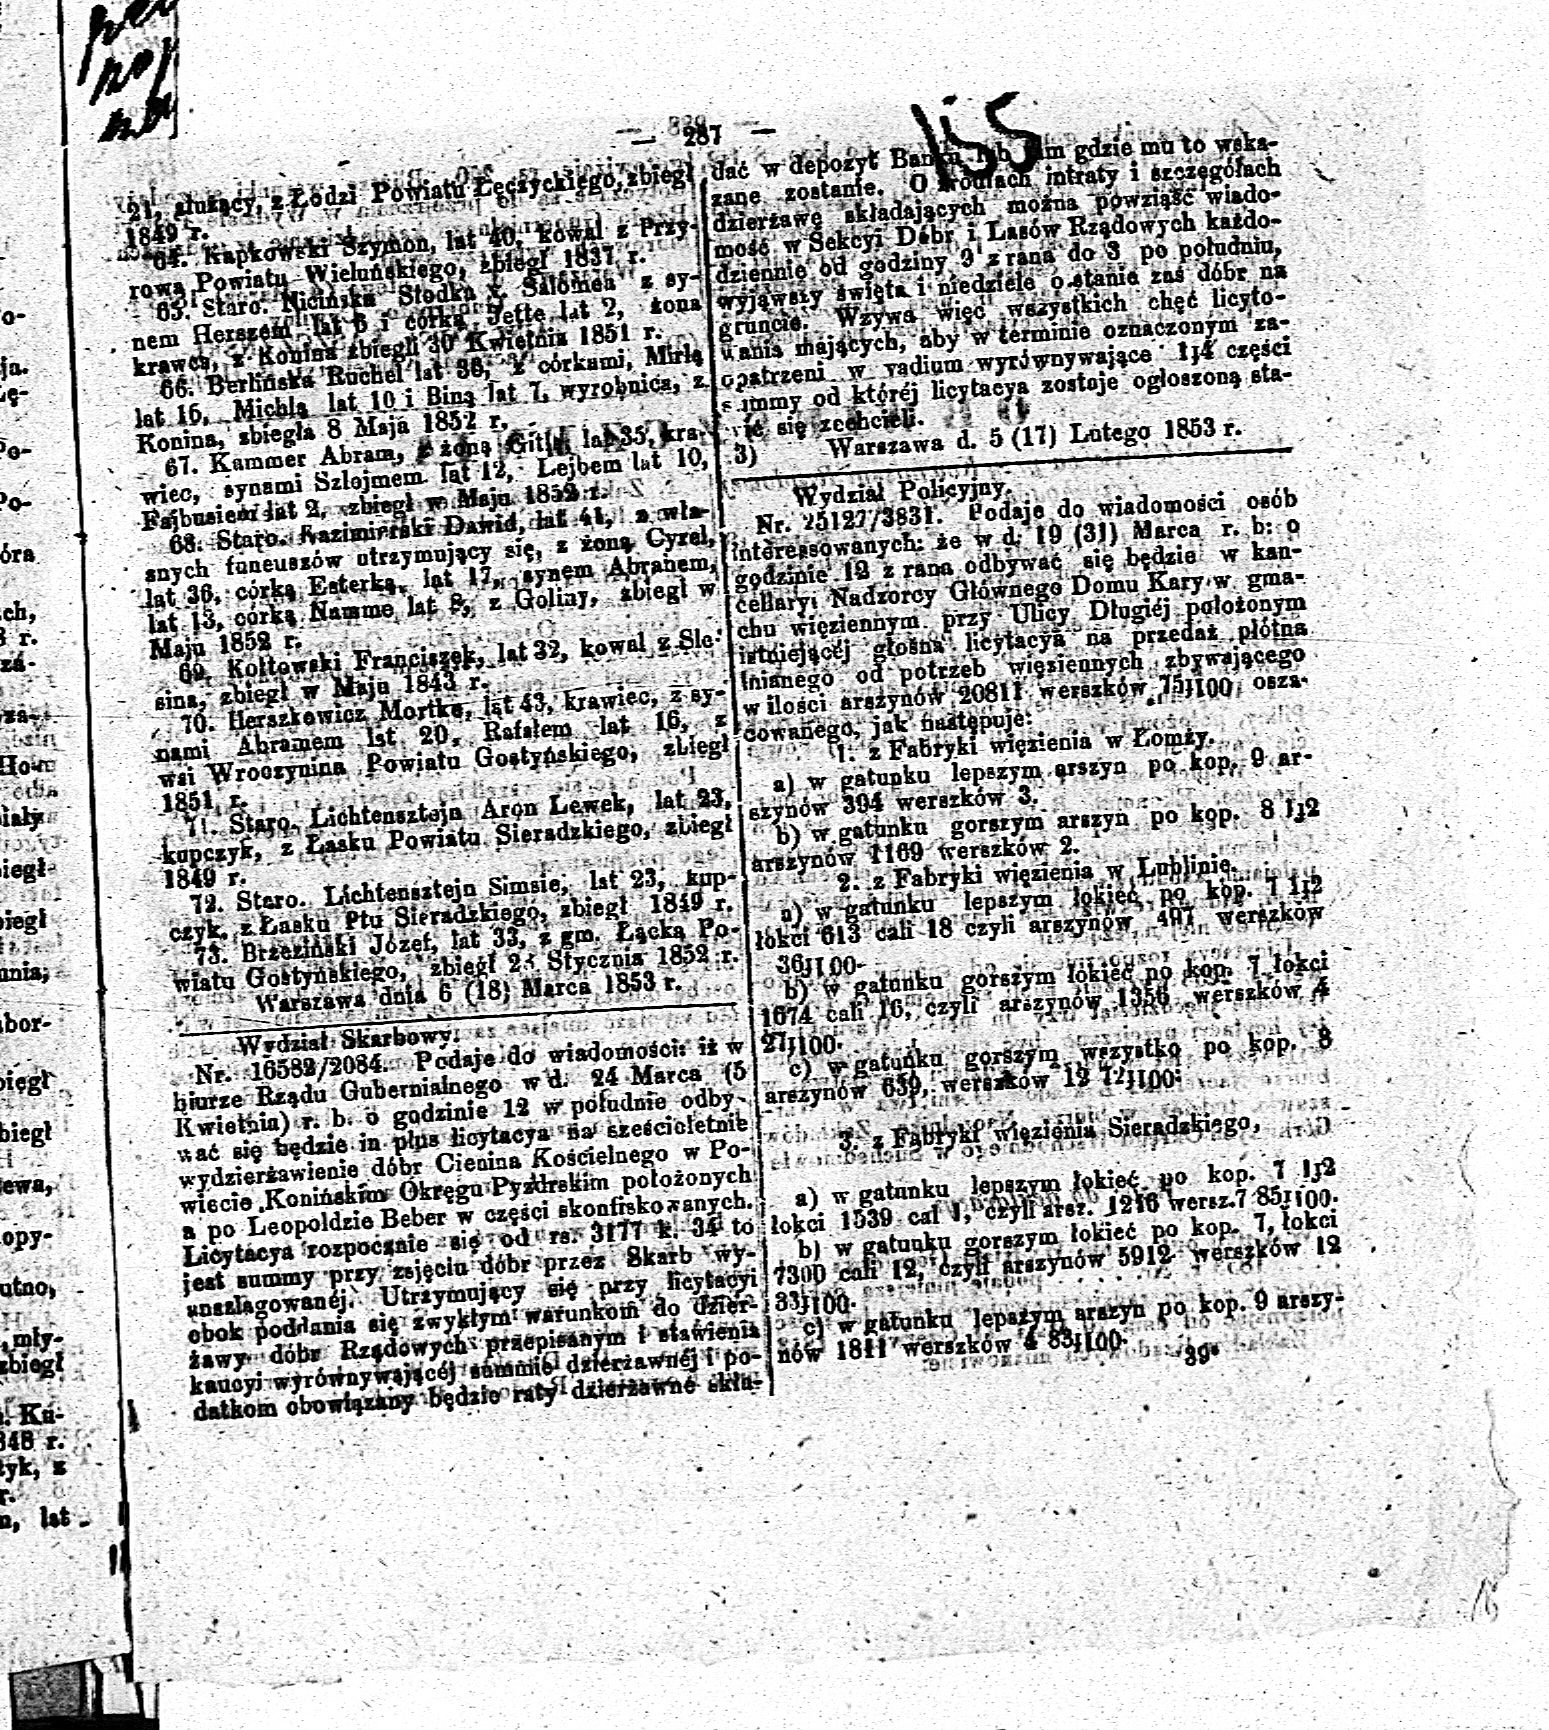 — 287 —
155
21, służący, z Łodzi Powiatu Łęczyckiego, zbiegł
1849 r.
64. Kapkowski Szymon, lat 40, kowal z Przy-
rowa Powiatu Wieluńskiego, zbiegł 1837 r.
65. Staro. Nicińska Słodka v. Salomea z sy-
nem Herszem lat 6 i córką Jettę lat 2, żona
krawca, z Konina zbiegli 30 Kwietnia 1851 r.
66. Berlińska Ruchel lat 36, z córkami, Mirlą
lat 16, Michlą lat 10 i Biną lat 7, wyrobnica, z
Konina, zbiegła 8 Maja 1852 r.
67. Kammer Abram, z żoną Gitlą lat 35, kra-
wiec, synami Szlojmem lat 12, Lejbem lat 10,
Fajbusiem lat 2, zbiegł w Maju 1852 r.
68. Staro. Kazimierski Dawid, lat 41, z wła-
snych funeuszów utrzymujący się, z żoną Cyrel,
lat 36, córką Esterką, lat 17, synem Abrahem,
lat 13, córką Namme lat 8, z Goliny, zbiegł w
Maju 1852 r.
69. Kołtowski Franciszek, lat 32, kowal z Sle-
sina, zbiegł w Maju 1843 r.
70. Herszkowicz Mortke, lat 43, krawiec, z sy-
nami Abramem lat 20, Rafałem lat 16, z
wsi Wroczynina Powiatu Gostyńskiego, zbiegł
1851 r.
71. Staro. Lichtensztejn Aron Lewek, lat 23,
kupczyk, z Łasku Powiatu Sieradzkiego, zbiegł
1849 r.
72. Staro. Lichtensztejn Simsie, lat 23, kup-
czyk, z Łasku Ptu Sieradzkiego, zbiegł 1849 r.
73. Brzeziński Józef, lat 33, z gm. Łącka Po-
wiatu Gostyńskiego, zbiegł Stycznia 1852 r.
Warszawa dnia 6 (18) Marca 1853 r.
Wydział Skarbowy.
Nr. 16582/2084. Podaje do wiadomości: iż w
biurze Rządu Gubernialnego w d. 24 Marca (5
Kwietnia) r. b. o godzinie 12 w południe odby-
wać się będzie in plus licytacya na sześcioletnie
wydzierżawienie dóbr Cienina Kościelnego w Po-
wiecie Konińskim Okręgu Pyzdrskim położonych
a po Leopoldzie Beber w części skonfiskowanych.
Licytacya rozpocznie się od rs. 3177 k. 34 to
jest summy przy zajęciu dóbr przez Skarb wy-
anszlagowanéj. Utrzymujący się przy licytacyi
obok poddania się zwykłym warunkom do dzier-
żawy dóbr Rządowych przepisanym i stawienia
kaucyi wyrównywającéj summie dzierżawnéj i po-
datkom obowiązany będzie raty dzierżawne skła-
dać w depozyt Banku lub tam gdzie mu to wska-
zane zostanie. O źródłach intraty i szczegółach
dzierżawę składających można powziąść wiado-
mość w Sekcyi Dóbr i Lasów Rządowych każdo-
dziennie od godziny 9 z rana do 3 po południu,
wyjąwszy święta i niedziele o stanie zaś dóbr na
gruncie. Wzywa więc wszystkich chęć licyto-
wania mających, aby w terminie oznaczonym za-
opatrzeni w vadium wyrównywające 1/4 części
summy od któréj licytacya zostaje ogłoszoną sta-
wić się zechcieli.
3) Warszawa d. 5 (17) Lutego 1853 r.
Wydział Policyjny.
Nr. 25127/3831. Podaje do wiadomości osób
interessowanych: że w d. 19 (31) Marca r. b: o
godzinie 12 z rana odbywać się będzie w kan-
cellaryi Nadzorcy Głównego Domu Kary w gma-
chu więziennym przy Ulicy Długiéj położonym
istniejącéj głośna licytacya na przedaż płótna
lnianego od potrzeb więziennych zbywającego
w ilości arszynów 20811 werszków 75/100, osza-
cowanego, jak następuje:
1. z Fabryki więzienia w Łomży.
a) w gatunku lepszym arszyn po kop. 9 ar-
szynów 394 werszków 3.
b) w gatunku gorszym arszyn po kop. 8 1/2
arszynów 1169 werszków 2.
2. z Fabryki więzienia w Lublinie.
a) w gatunku lepszym łokieć po kop. 7 1/2
łokci 613 cali 18 czyli arszynów 497 werszków
36/100.
b) w gatunku gorszym łokieć po kop. 7 łokci
1674 cali 16, czyli arszynów 1356 werszków 4
27/100.
c) w gatunku gorszym wszystko po kop. 8
arszynów 639, werszków 12 72/100.
3. z Fabryki więzienia Sieradzkiego,
a) w gatunku lepszym łokieć po kop. 7 1/2
łokci 1539 cal 1, czyli arsz. 1246 wersz. 7 85/100.
b) w gatunku gorszym łokieć po kop. 7, łokci
7300 cali 12, czyli arszynów 5912 werszków 12
33/100.
c) w gatunku lepszym arszyn po kop. 9 arszy-
nów 1811 werszków 4 83/100.
39*